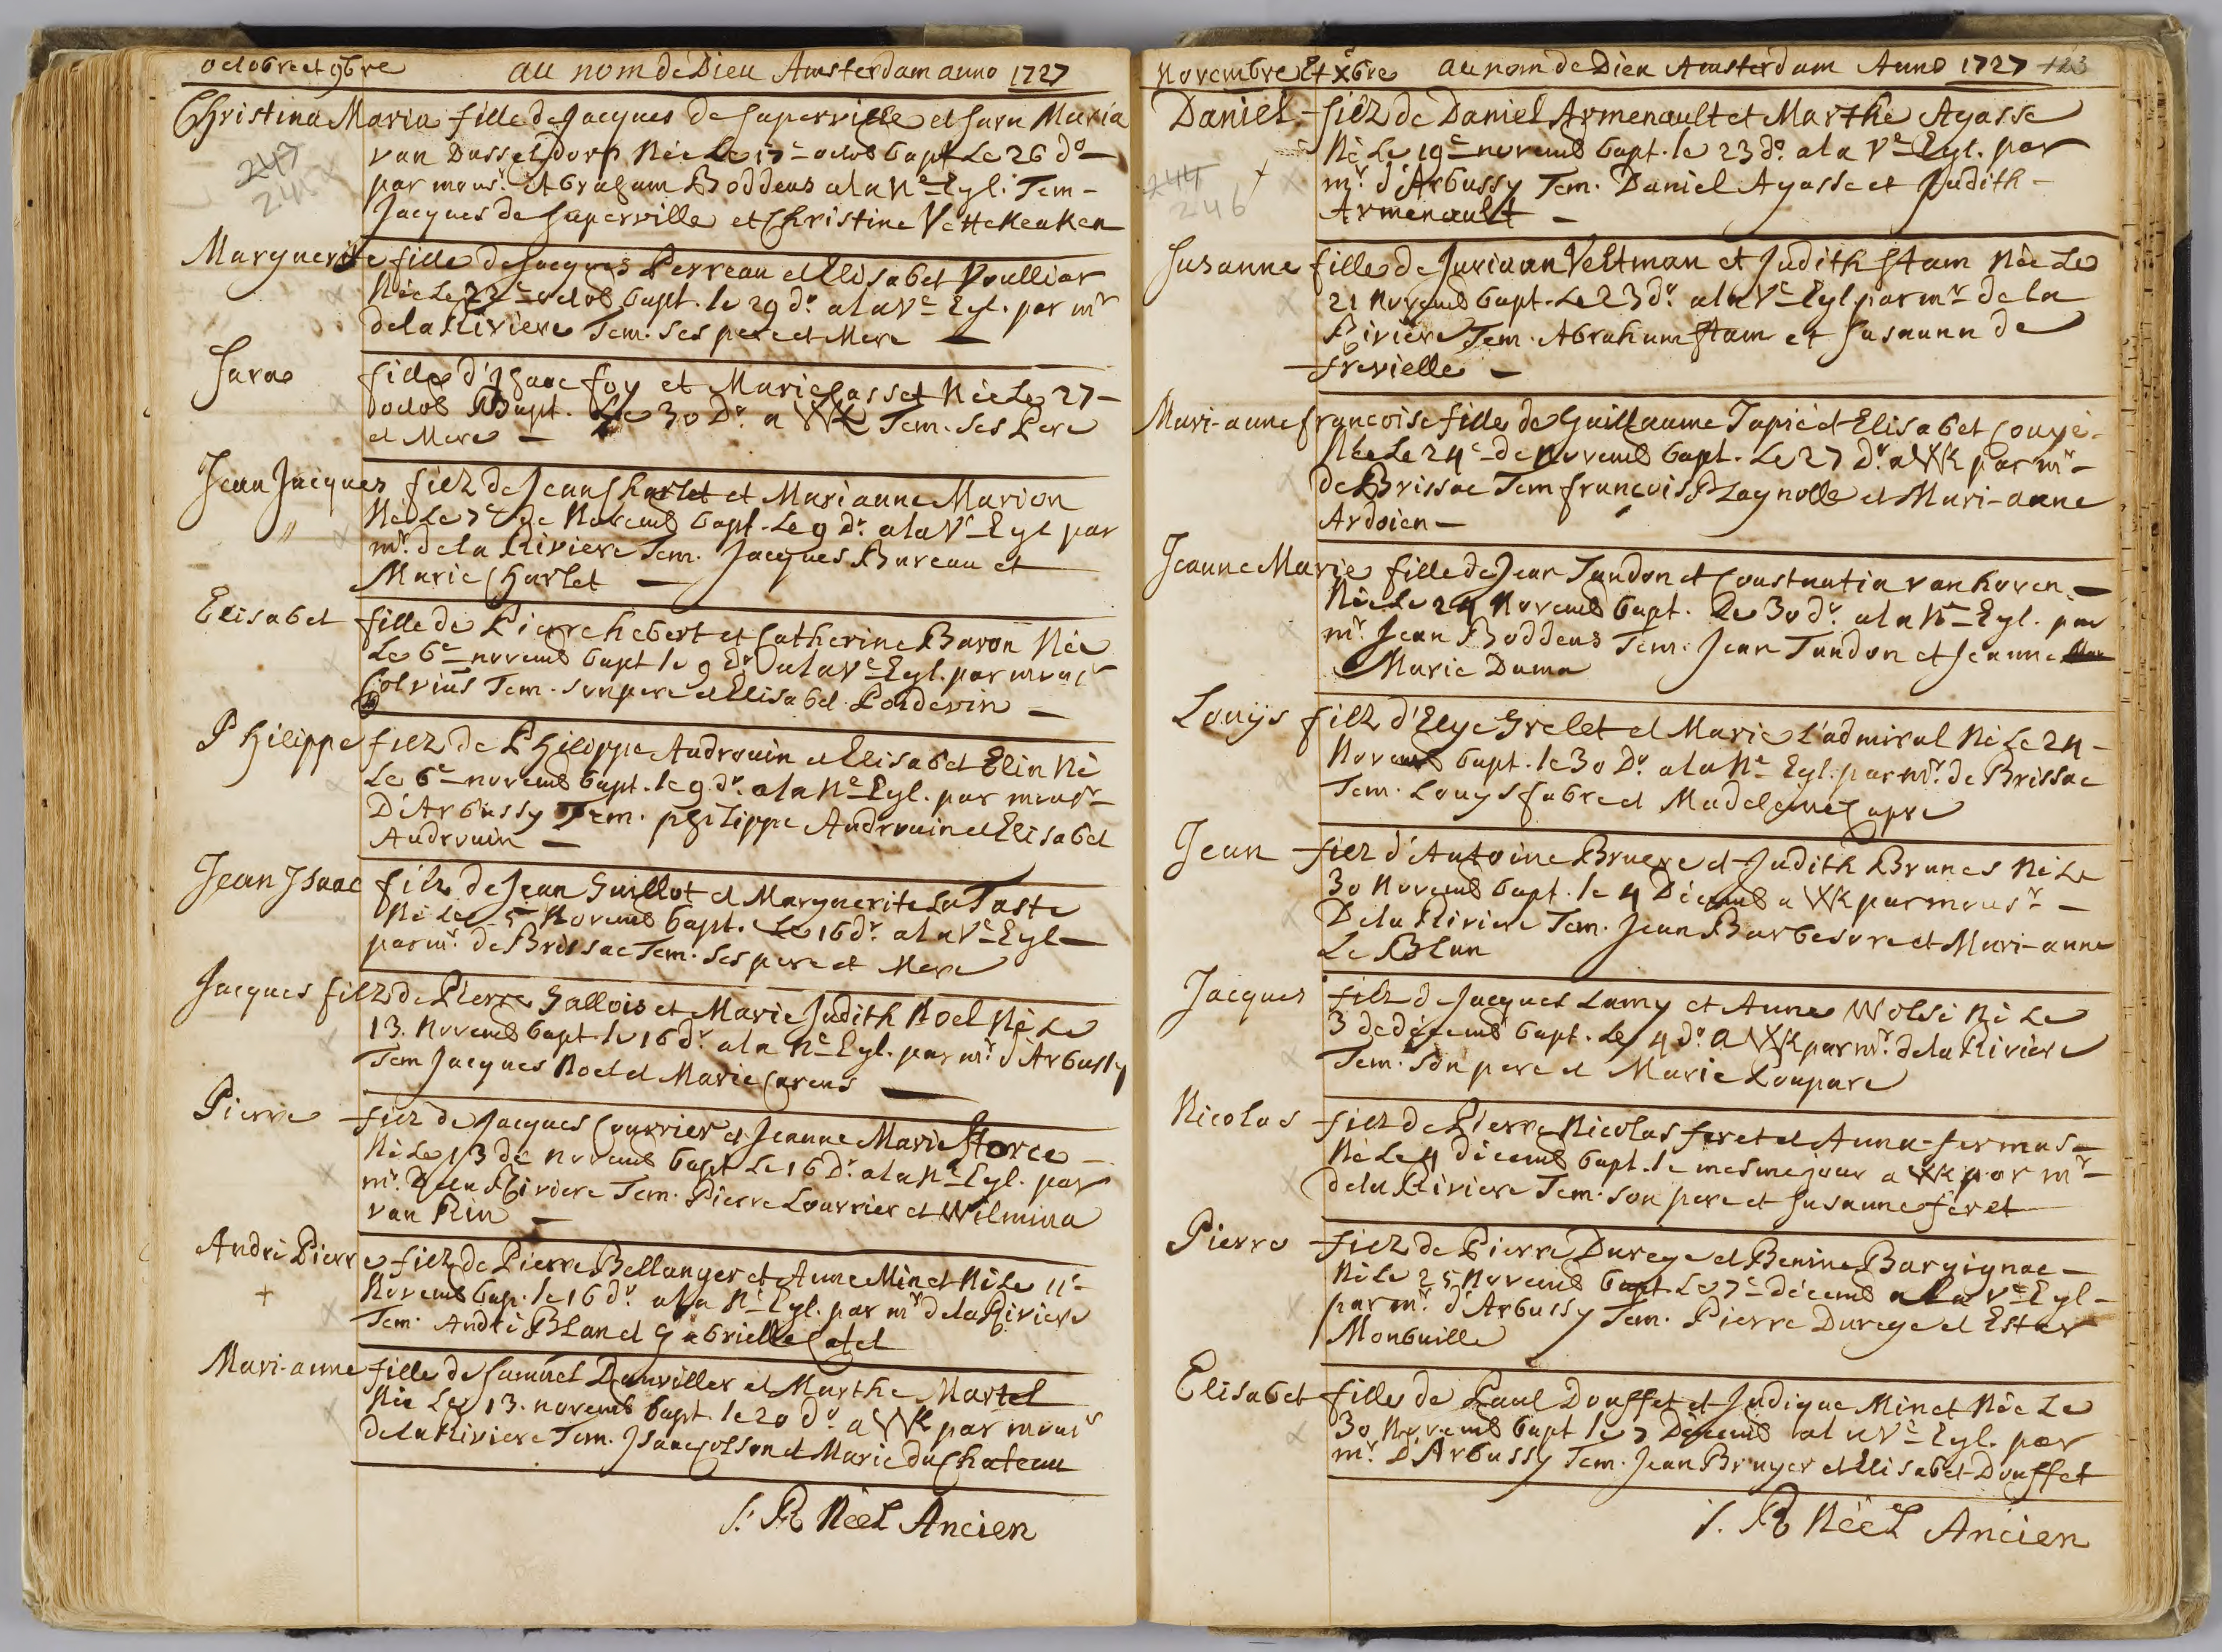 octobre et 9bre au nom de Dieu Amsterdam anno 1727
Christina Maria fille de Jacques de Superville et Sara Maria
van Dusseldorp Née Le 17e octob bapt Le 26 do
247
par monsr. Abraham Boddens a la Ne Egl. Tem-
245
Jacques de Superville et Christine Vettekeuken
Marguerite fille de Jacques Perreau et Elisabet Voulliar
Née Le 22e octob bapt. le 29 do. a la Ve Egl. par mr
de la Riviere Tem. ses pere et Mere
Sara fille d'Isaac foy et Marie Casset Née Le 27-
octob Bapt. Le 30 Do. a WK Tem. ses Pere
et Mere
Jean Jacques filz de Jean Charlet et Marianne Marion
Né Le 7e de Novemb bapt. Le 9 Do. a la Ve Egl par
mr. de la Riviere Tem. Jacques Bureau et
Marie Charlet
Elisabet fille de Pierre hebert et Catherine Baron Née
Le 6e novemb bapt le 9 Do a la Ve Egl. par monsr
Colvius Tem. son pere et Elisabet Poidevin
Philippe filz de Philippe Androuin et Elisabet Elin Né
Le 6e novemb bapt. le 9 do. a la Ne Egl. par monsr
D'Arbussy Tem. philippe Androuin et Elisabet
Androuin
Jean Isaac filz de Jean Guillot et Marguerite La Taste
Né Le 5 Novemb bapt. Le 16 do. a la Ve Egl
par mr. de Brissac Tem. ses pere et Mere
Jacques filz de Pierre Gallois et Marie Judith Noel Né Le
13. Novemb bapt. le 16 do. a la Ne Egl. par mr. d'Arbussy
Tem Jacques Noel et Marie Carens
Pierre filz de Jacques Courrier et Jeanne Marie Storce
Né Le 13 de novemb bapt Le 16 Do. a la Ne Egl. par
mr. De la Riviere Tem. Pierre Courrier et Wilmina
van Rin
André Pierre filz de Pierre Bellanger et Anne Minet Né Le 11e
Novemb bap. le 16 do. a la Ne Egl. par mr de la Riviere
Tem. André Blan et Gabrielle Catel
Mari-anne fille de Samuel Danviller et Marthe Martel
Née Le 13. novemb bapt. le 20 do a WK par monsr
de la Riviere Tem. Isaac Cosson et Marie du Chateau
S. R Néel Ancien
Novembre Et Xbre au nom de Dieu Amsterdam Anno 1727 123
Daniel filz de Daniel Armenault et Marthe Agasse
Né Le 19e novemb bapt. le 23 do. a la Ve Egl. par
244
mr. d'Arbussy Tem. Daniel Agasse et Judith-
246
Armenault
Susanne fille de Juriaan Veltman et Judith Stam Née Le
21 Novemb bapt. Le 23 do. a la Ve Egl. par mr de la
Riviere Tem. Abraham Stam et Susanna de
frevielle
Mari-anne francoise fille de Guillaume Tapié et Elisabet Couyé.
Née Le 24e de Novemb bapt. Le 27 Do. a WK par mr
de Brissac Tem francois Plagnolle et Mari-anne
Ardoien
Jeanne Marie fille de Jean Tandon et Constantia van hoven
Née Le 24 Novemb bapt. Le 30 do. a la Ne Egl. par
mr. Jean Boddens Tem. Jean Tandon et Jeanne
Marie Dama
Louijs filz d'Elye Grelet et Marie L'admiral Né Le 24-
Novemb bapt. le 30 Do. a la Ne Egl. par mr. de Brissac
Tem. Louys fabre et Madeleine Capre
Jean filz d'Antoine Bruere et Judith Brunes Né Le
30 Novemb bapt. le 4 Décemb a WK par monsr
De la Riviere Tem. Jean Barbesore et Mari-anne
Le Blan
Jacques filz d Jacques Lamy et Anne Wolsi Né Le
3 de décemb bapt. Le 4 do. a WK par mr. de la Riviere
Tem. Son pere et Marie Loupare
Nicolas filz de Pierre Nicolas feret et Anna fermas
Né Le 4 décemb bapt. le mesme jour a WK par mr
de la Riviere Tem. son pere et Susanne feret
Pierre filz de Pierre Durege et Benine Bargignac
Né Le 25 Novemb bapt. Le 7e décemb a la Ve Egl
par mr. d'Arbussy Tem. Pierre Durege et Ester
Monbuille
Elisabet fille de Paul Douffet et Judique Minet Née Le
30 Novemb bapt le 7 Décemb a la Ve Egl. par
mr. D'Arbussy Tem. Jean Bruyer et Elisabet Douffet
S. R Néel Ancien